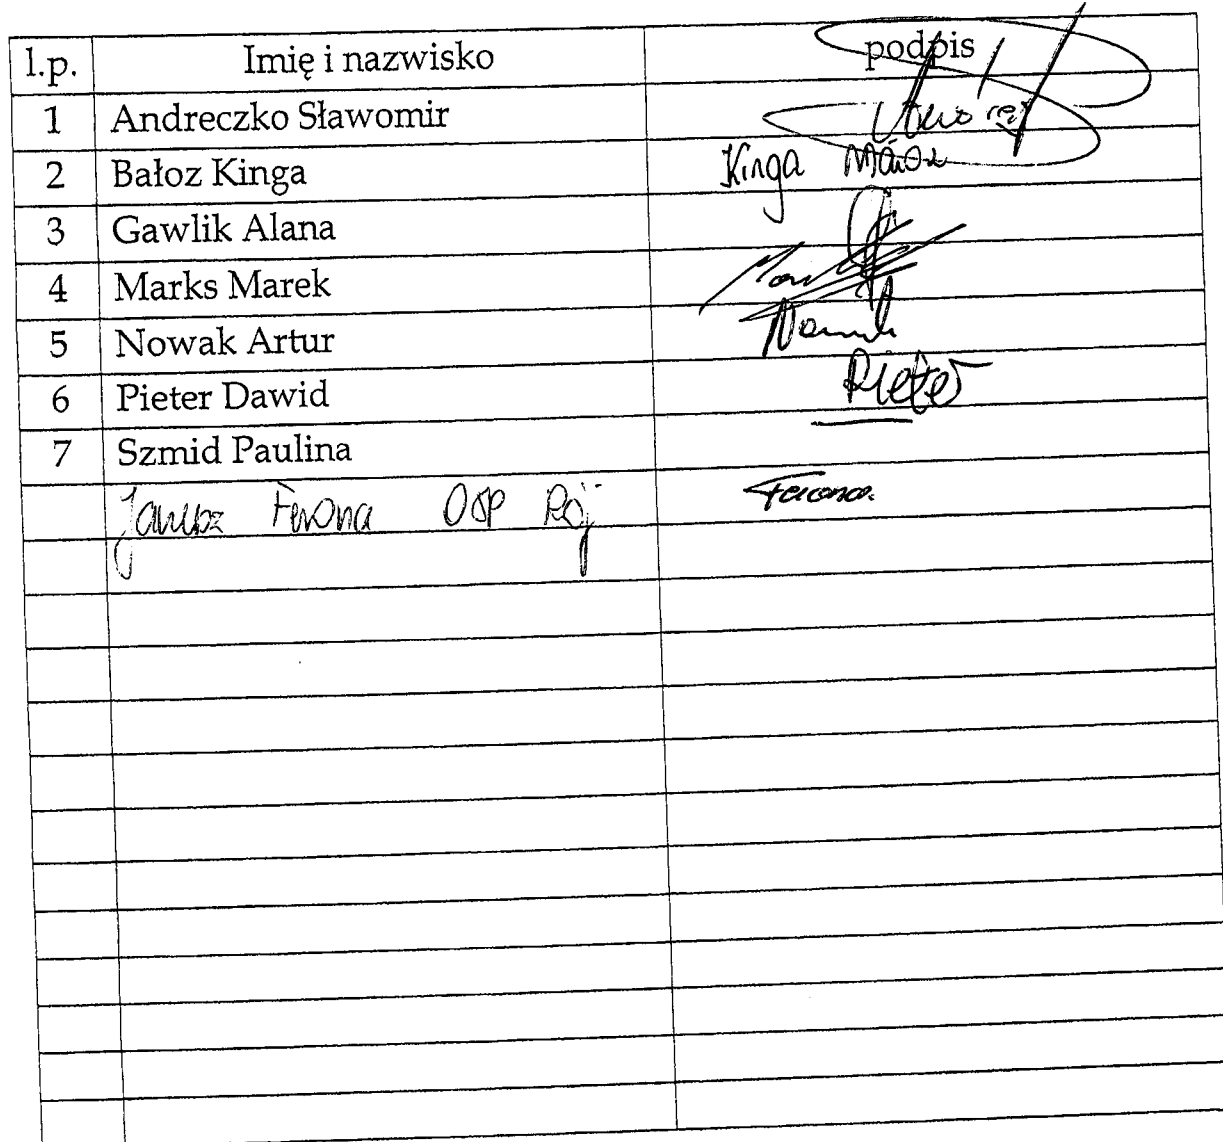 l.p. Imię i nazwisko podpis
1 Andreczko Sławomir
2 Bałoz Kinga Kinga
3 Gawlik Alana
4 Marks Marek
5 Nowak Artur Nowak
6 Pieter Dawid Pieter
7 Szmid Paulina
Janusz Ferona OSP Rój Ferona